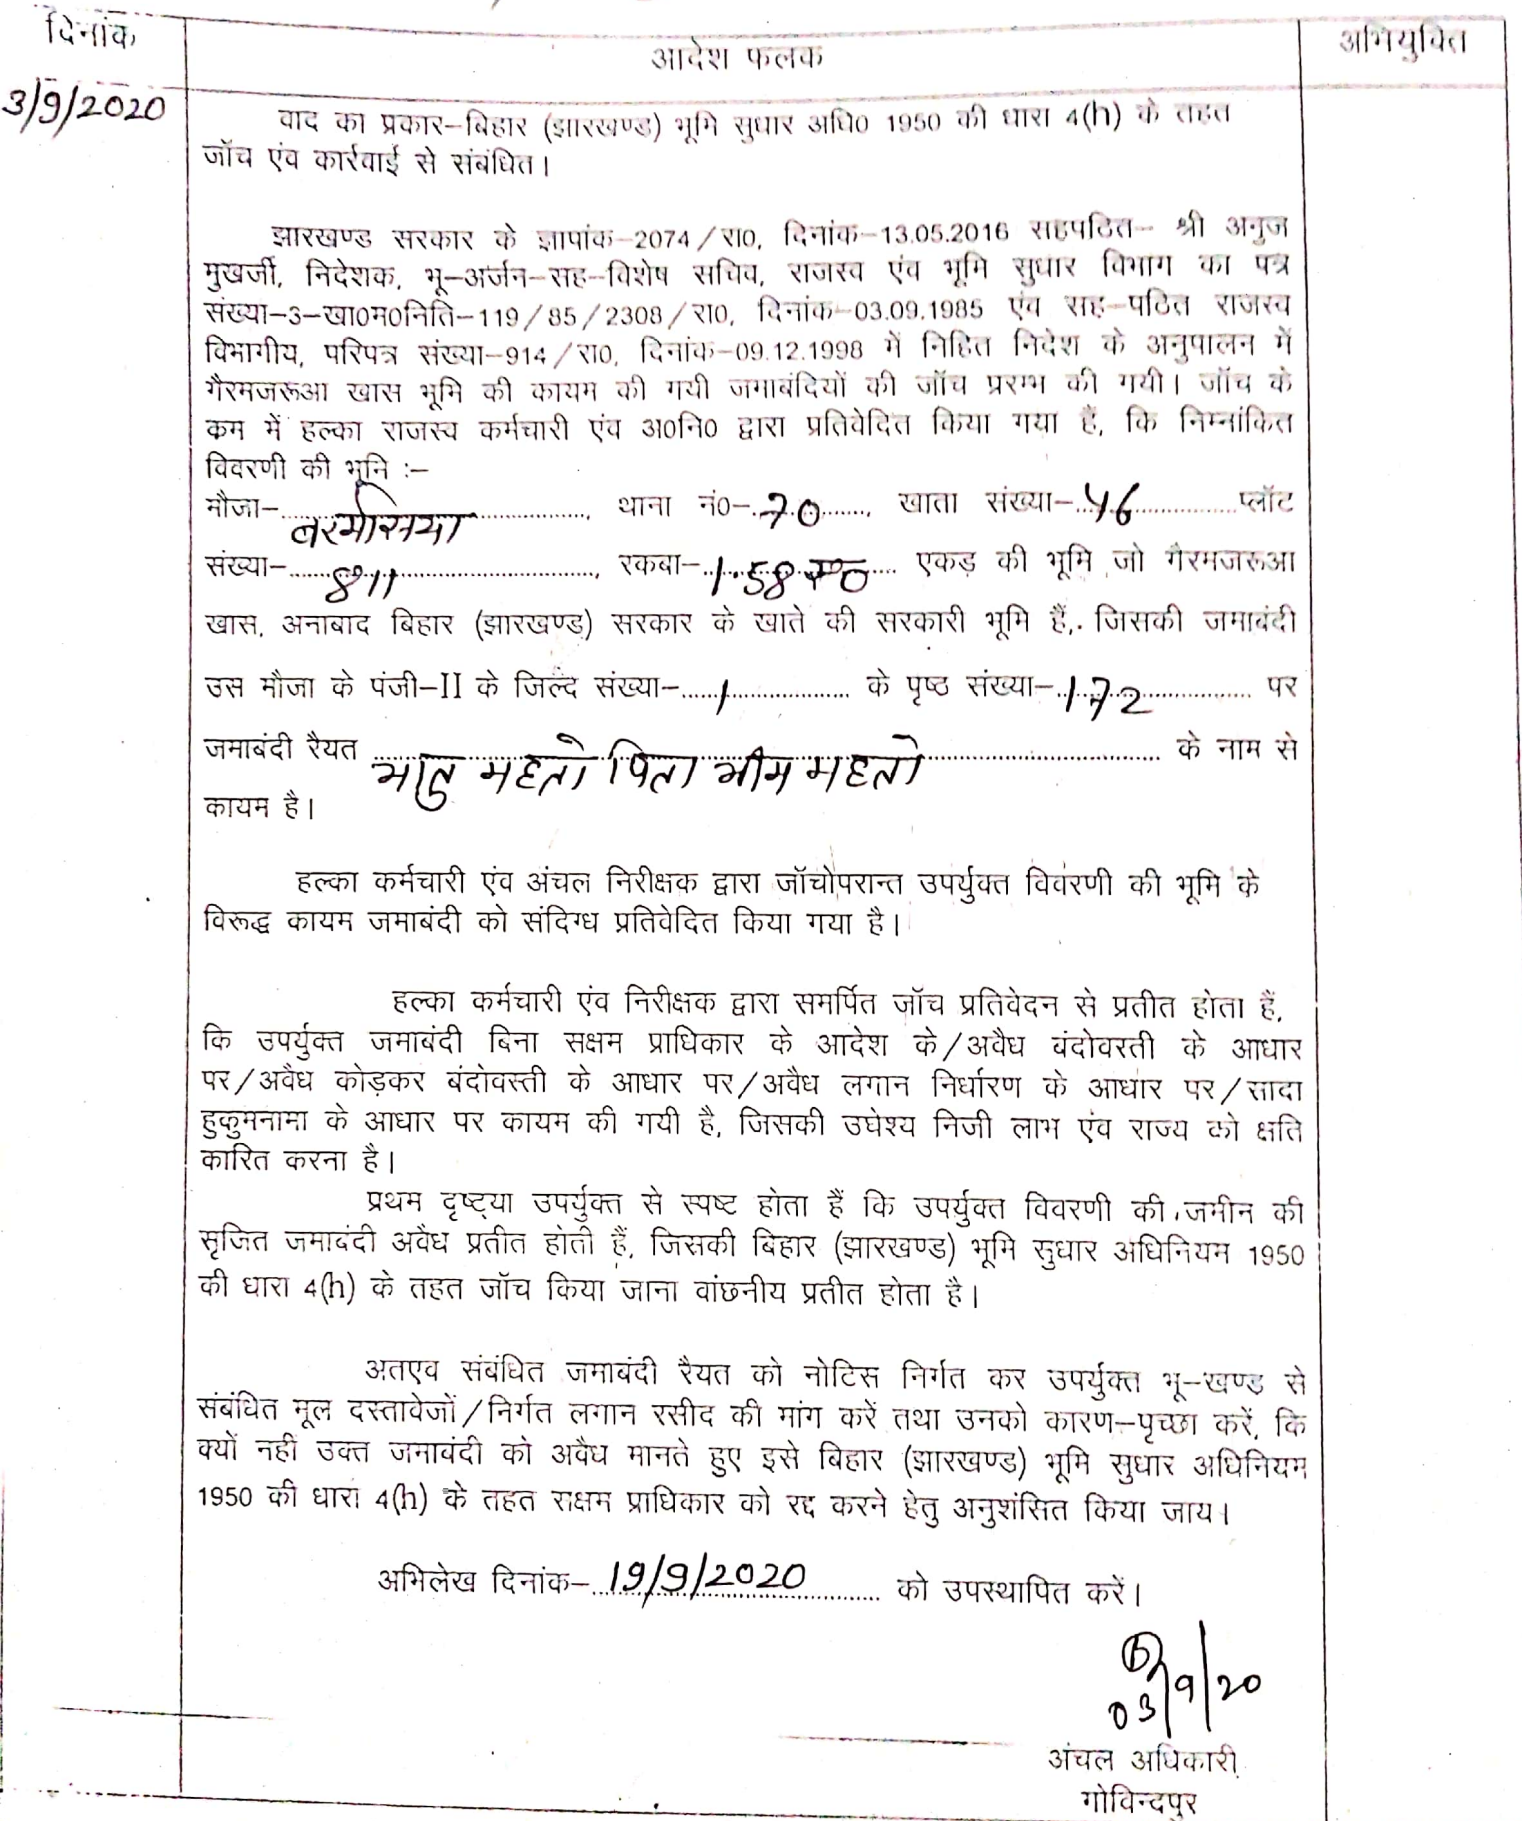 दिनांक
आदेश फलक
अभियुक्ति
3/9/2020
वाद का प्रकार–बिहार (झारखण्ड) भूमि सुधार अधि0 1950 की धारा 4(h) के तहत
जॉच एंव कार्रवाई से संबंधित।
झारखण्ड सरकार के ज्ञापांक–2074/रा0, दिनांक–13.05.2016 सहपठित– श्री अनुज
मुखर्जी, निदेशक, भू–अर्जन–सह–विशेष सचिव, राजस्व एंव भूमि सुधार विभाग का पत्र
संख्या–3–खा0म0निति–119/85/2308/रा0, दिनांक–03.09.1985 एंव सह–पठित राजस्व
विभागीय, परिपत्र संख्या–914/रा0, दिनांक–09.12.1998 में निहित निदेश के अनुपालन में
गैरमजरूआ खास भूमि की कायम की गयी जमाबंदियों की जॉच प्ररम्भ की गयी। जॉच के
कम में हल्का राजस्व कर्मचारी एंव अ0नि0 द्वारा प्रतिवेदित किया गया हैं, कि निम्नांकित
विवरणी की भूमि :–
मौजा–बरमसिया, थाना नं0–70, खाता संख्या–46 प्लॉट
संख्या–811, रकबा–1.58 एकड़ की भूमि जो गैरमजरूआ
खास, अनाबाद बिहार (झारखण्ड) सरकार के खाते की सरकारी भूमि हैं, जिसकी जमाबंदी
उस मौजा के पंजी–II के जिल्द संख्या–1 के पृष्ठ संख्या–172 पर
जमाबंदी रैयत भातु महतो पिता भीम महतो के नाम से
कायम है।
हल्का कर्मचारी एंव अंचल निरीक्षक द्वारा जॉचोपरान्त उपर्युक्त विवरणी की भूमि के
विरूद्ध कायम जमाबंदी को संदिग्ध प्रतिवेदित किया गया है।
हल्का कर्मचारी एंव निरीक्षक द्वारा समर्पित जॉच प्रतिवेदन से प्रतीत होता हैं,
कि उपर्युक्त जमाबंदी बिना सक्षम प्राधिकार के आदेश के/अवैध बंदोवस्ती के आधार
पर/अवैध कोड़कर बंदोवस्ती के आधार पर/अवैध लगान निर्धारण के आधार पर/सादा
हुकुमनामा के आधार पर कायम की गयी है, जिसकी उघेश्य निजी लाभ एंव राज्य को क्षति
कारित करना है।
प्रथम दृष्ट्या उपर्युक्त से स्पष्ट होता हैं कि उपर्युक्त विवरणी की जमीन की
सृजित जमाबंदी अवैध प्रतीत होती हैं, जिसकी बिहार (झारखण्ड) भूमि सुधार अधिनियम 1950
की धारा 4(h) के तहत जॉच किया जाना वांछनीय प्रतीत होता है।
अतएव संबंधित जमाबंदी रैयत को नोटिस निर्गत कर उपर्युक्त भू–खण्ड से
संबंधित मूल दस्तावेजों/निर्गत लगान रसीद की मांग करें तथा उनको कारण–पृच्छा करें, कि
क्यों नही उक्त जमाबंदी को अवैध मानते हुए इसे बिहार (झारखण्ड) भूमि सुधार अधिनियम
1950 की धारा 4(h) के तहत सक्षम प्राधिकार को रद्द करने हेतु अनुशंसित किया जाय।
अभिलेख दिनांक–19/9/2020 को उपस्थापित करें।
03/9/20
अंचल अधिकारी
गोविन्दपुर